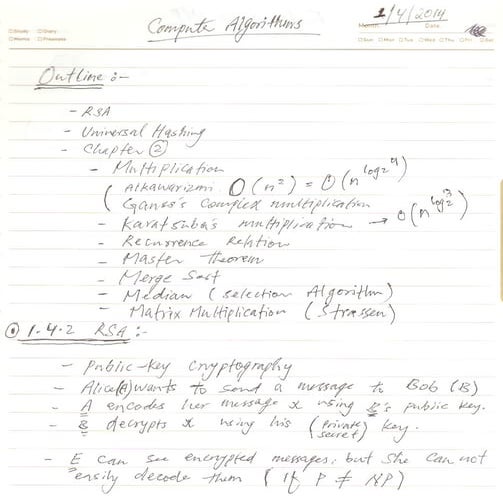 Compute Algorithms
1/4/2014
Date
Outline :-
- RSA
- Universal Hashing
- Chapter ②
- Multiplication
( Alkawarizmi O(n²) = O(n^log₂4)
Gauss's Complex multiplication
- Karatsuba's multiplication → O(n^log₂3)
- Recurrence Relation
- Master theorem
- Merge Sort
- Median (selection Algorithm)
- Matrix Multiplication (Strassen)
1.4.2 RSA :-
- Public-key cryptography
- Alice(A) wants to send a message to Bob (B)
- A encodes her message x using B's public key.
- B decrypts x using his (private secret) key.
- E can see encrypted messages, but she can not
easily decode them (If P ≠ NP)